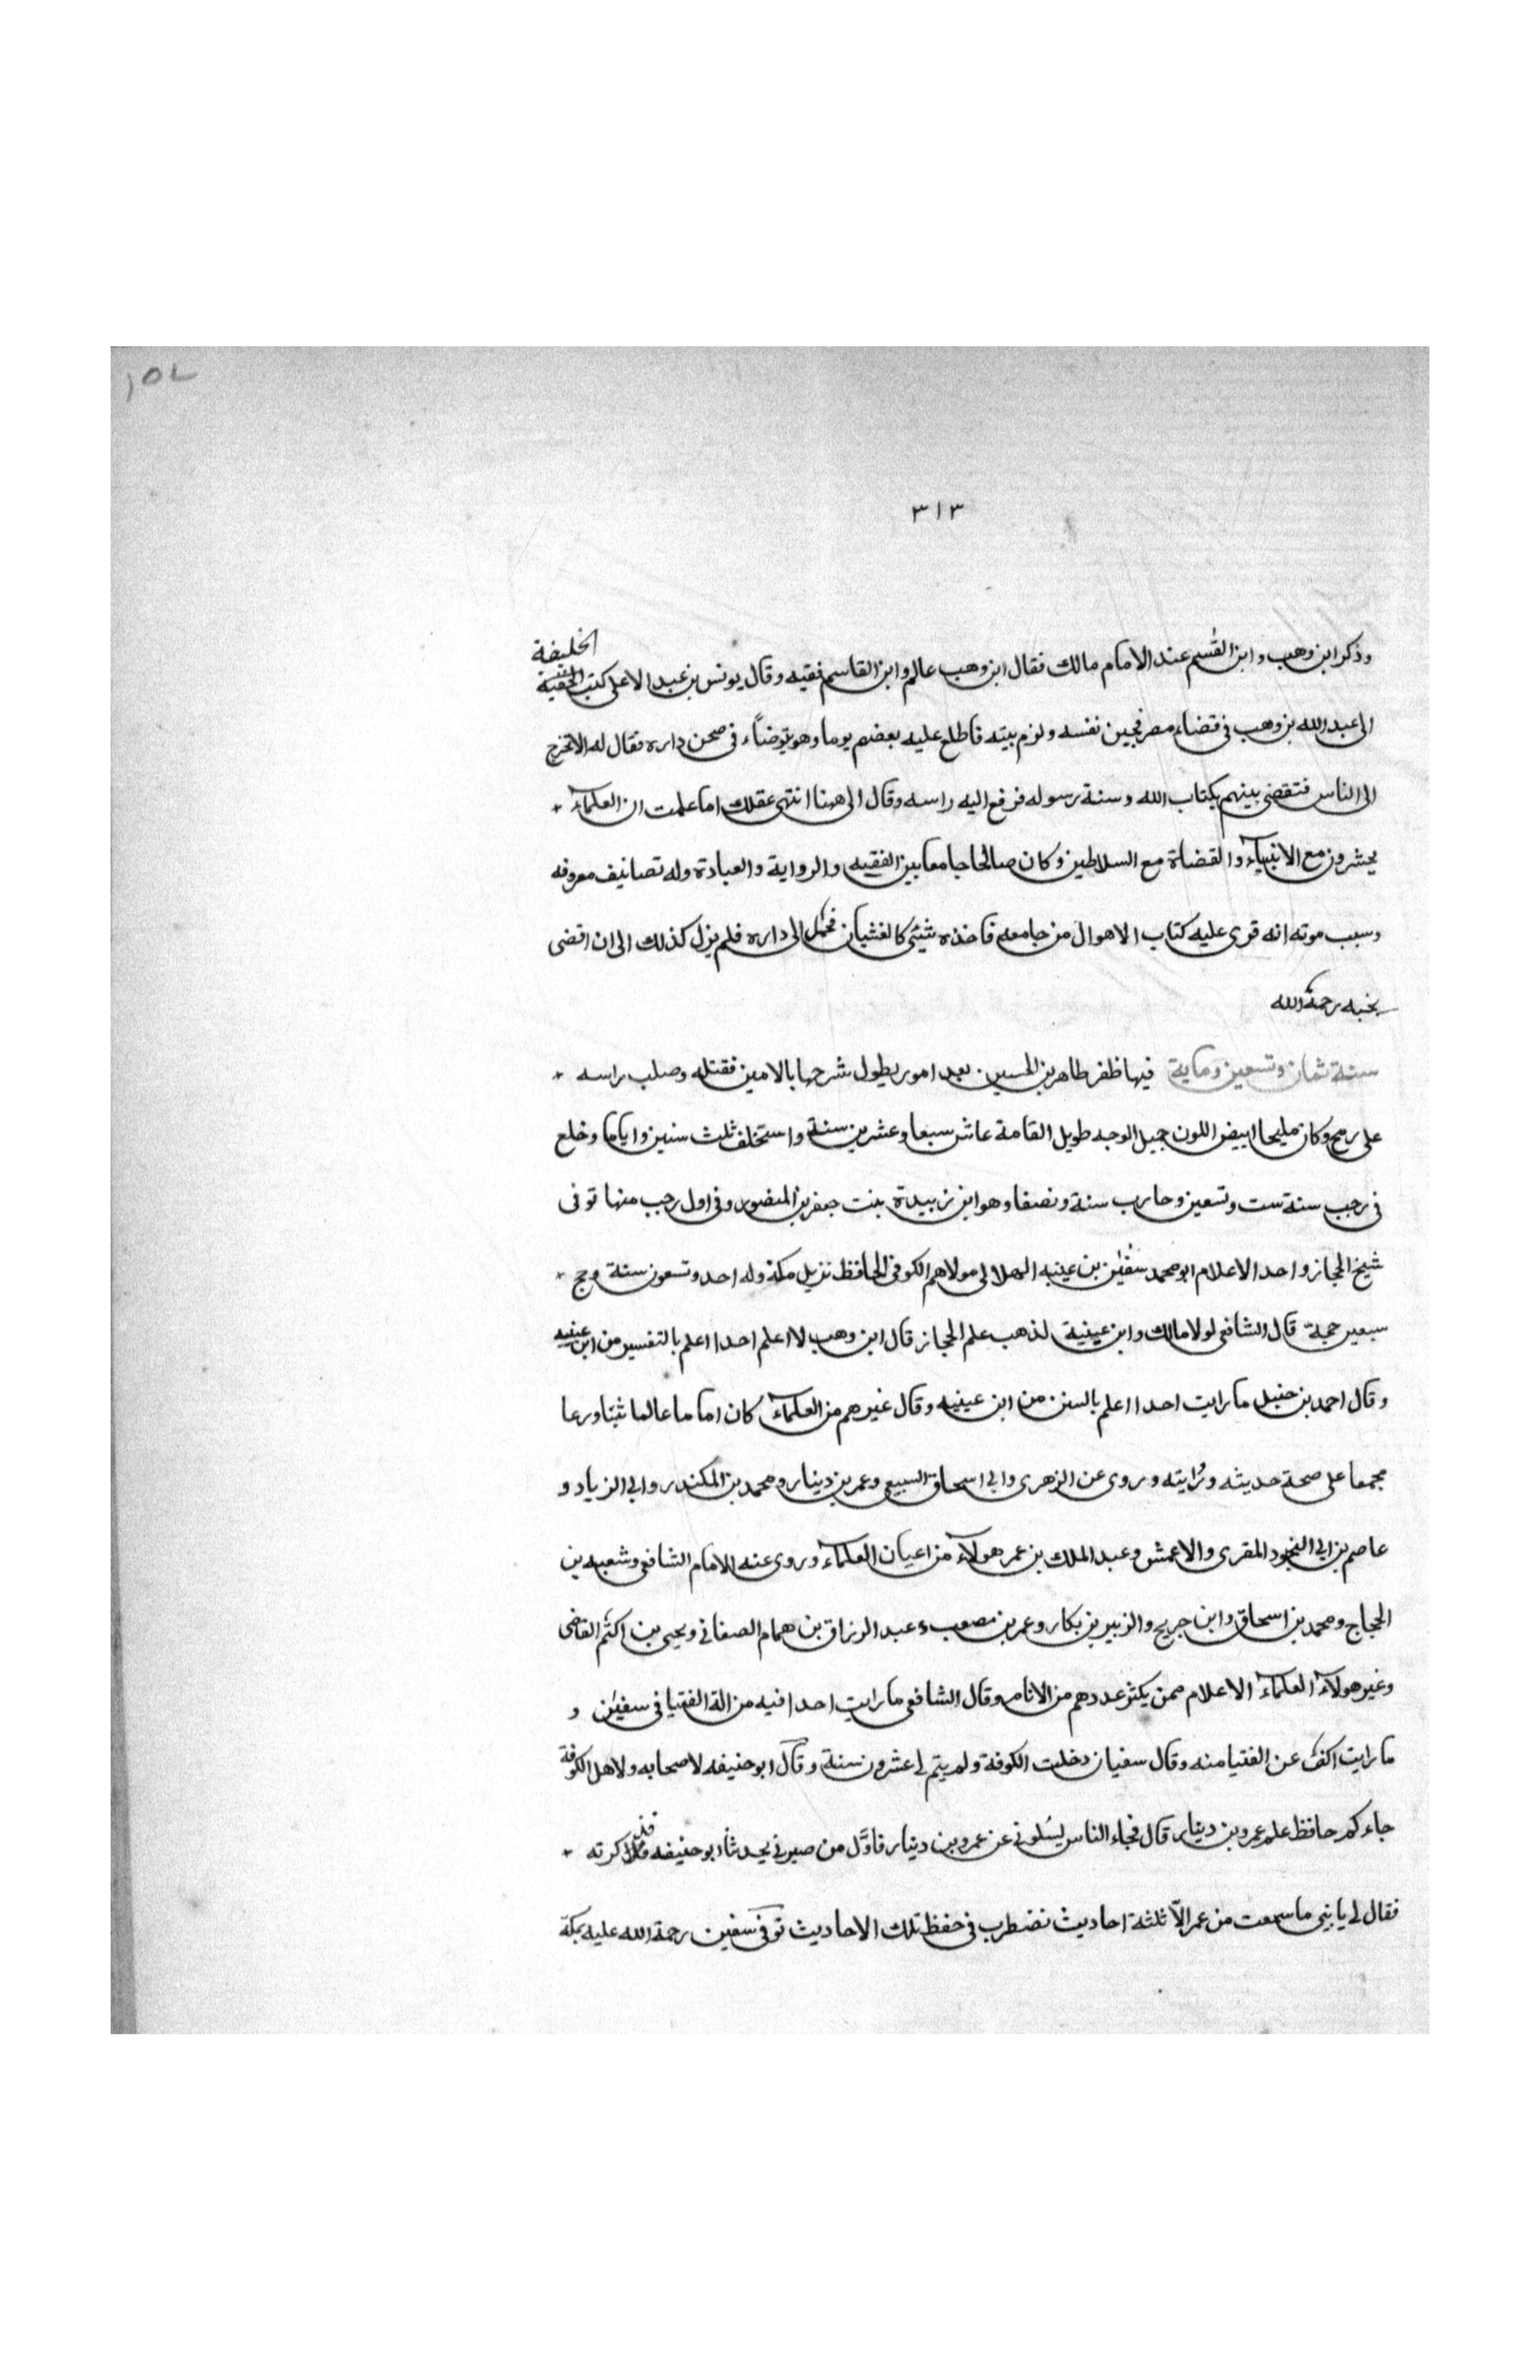 ١٥٧
٣١٣
وذكر ابن وهب وابن القسم عند الامام مالك فقال ابن وهب عالم وابن القاسم فقيه وقال يونس بن عبد الاعلى كتب الخليفة
الى عبد الله بن وهب فى قضاء مصر فجين نفسه ولزم بيته فاطلع عليه بعضهم يوما وهو يتوضاء فى صحن داره فقال له الا تخرج
الى الناس فتقضى بينهم بكتاب الله وسنة رسوله فرفع اليه راسه وقال الى ههنا انتهى عقلك اما علمت ان العلماء
يحشرون مع الانبياء والقضاة مع السلاطين وكان صالحا جامعا بين الفقيه والرواية والعبادة وله تصانيف معروفه
وسبب موته انه قرى عليه كتاب الاهوال من جامعه فاخذه شئ كالغشيان فحمل الى داره فلم يزل كذلك الى ان اقضى
بخبه رحمة الله
سنة ثمان وتسعين وماية فيها ظفر طاهر بن الحسين بعد امور يطول شرحها بالامين فقتله وصلب راسه
على رمح وكان مليحا ابيض اللون جميل الوجه طويل القامة عاش سبعا وعشرين سنة واستخلف ثلث سنين واياما وخلع
فى رجب سنة ست وتسعين وحارب سنة ونصفا وهو ابن زبيدة بنت جعفر بن المنصور وفى اول رجب منها توفى
شيخ الحجاز واحد الاعلام ابو محمد سفين بن عينيه الهلالى مولاهم الكوفى الحافظ نزيل مكة وله احد وتسعون سنة وحج
سبعين حجة قال الشافعى لولا مالك وابن عيينية لذهب علم الحجاز قال ابن وهب لا اعلم احدا اعلم بالتفسير من ابن عينيه
وقال احمد بن حنبل ما رايت احدا اعلم بالسنن من ابن عينيه وقال غيرهم من العلماء كان اماما عالما ثبتا ورعا
مجمعا على صحة حديثه ورايته وروى عن الزهرى وابى اسحاق السبيعى وعمر بن دينار ومحمد بن المكندر وابى الزياد و
عاصم بن ابى النجود المقرى والاعمش وعبد الملك بن عمر هولاء من اعيان العلماء وروى عنه الامام الشافعى وشعبه بن
الحجاج ومحمد بن اسحاق وابن جريح والزبير بن بكار وعمر بن مصعب وعبد الرزاق بن همام الصغانى ويحيى بن اكثم القاضى
وغير هولاء العلماء الاعلام ممن يكثر عددهم من الانام وقال الشافعى ما رايت احدا فيه من الة الفتيا فى سفين و
ما رايت اكف عن الفتيا منه وقال سفيان دخلت الكوفة ولم يتم لى عشرون سنة وقال ابو حنيفه لاصحابه ولاهل الكوفة
جاءكم حافظ علم عمرو بن دينار قال فجاء الناس يسلونى عن عمرو بن دينار فاول من صيرنى يحدثا ابو حنيفه فذاكرته
فقال لى يا بنى ما سمعت من عمر الا ثلثة احاديث نضطرب فى حفظ تلك الاحاديث توفى سفين رحمة الله عليه بمكة